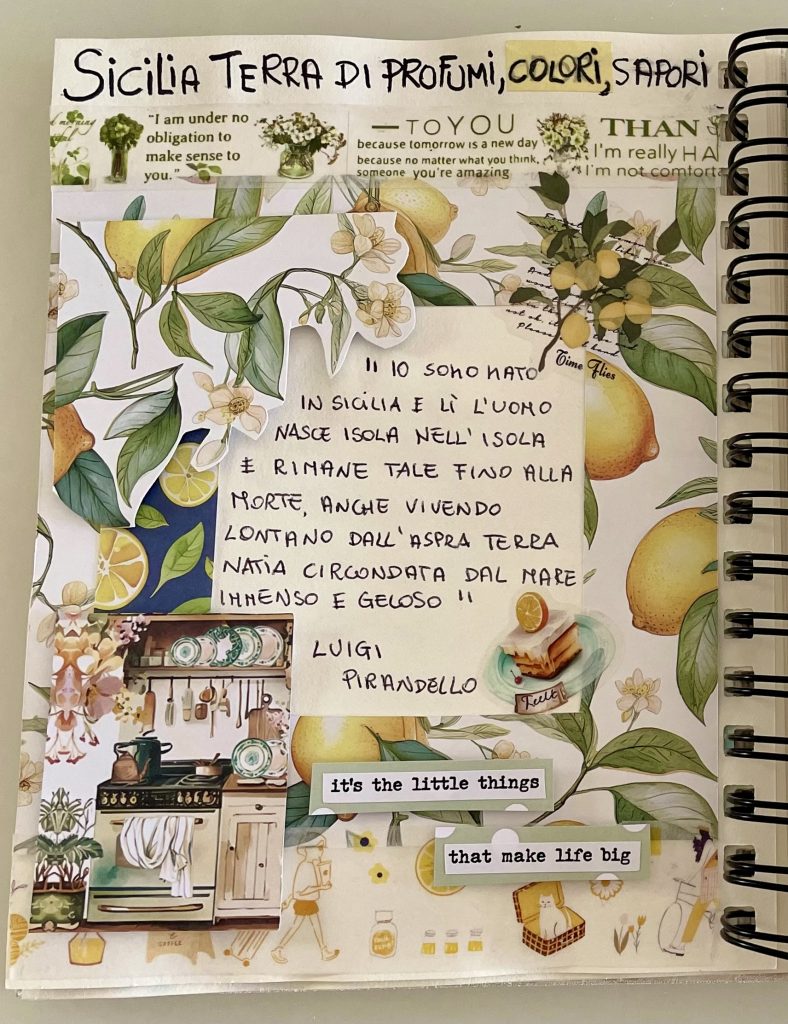 SICILIA TERRA DI PROFUMI, COLORI, SAPORI
"I am under no
obligation to
make sense to
you."
—TO YOU
because tomorrow is a new day
because no matter what you think,
someone you're amazing
THAN
I'm really HA
I'm not comforta
Time Flies
" IO SONO NATO
IN SICILIA E LÌ L'UOMO
NASCE ISOLA NELL'ISOLA
E RIMANE TALE FINO ALLA
MORTE, ANCHE VIVENDO
LONTANO DALL'ASPRA TERRA
NATIA CIRCONDATA DAL MARE
IMMENSO E GELOSO "
LUIGI
PIRANDELLO
it's the little things
that make life big
COFFEE